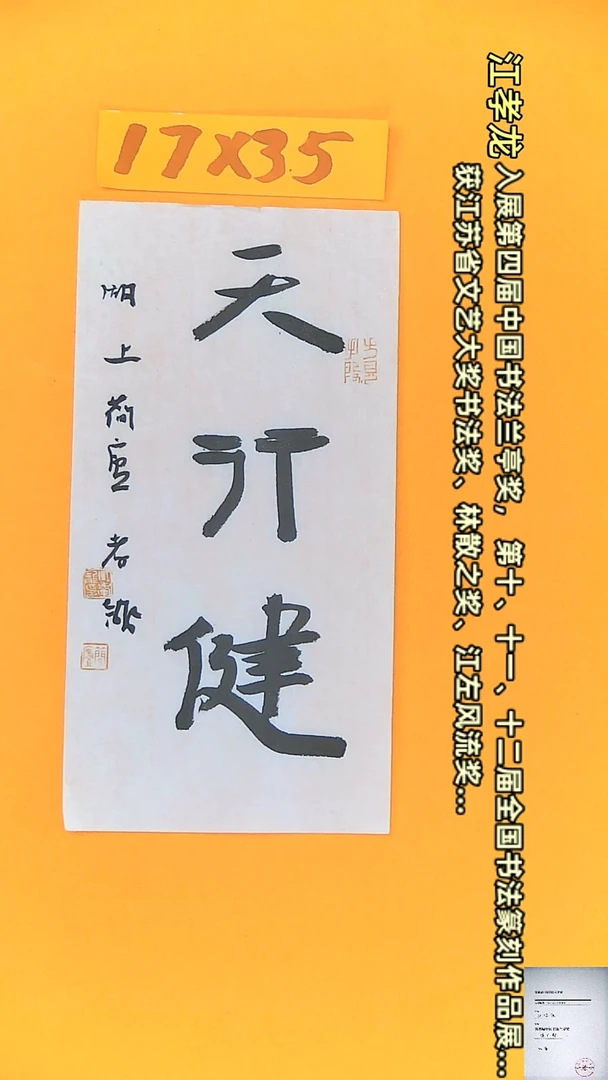 17X35
天行健
湖上简庐 孝龙
江孝龙 入展第四届中国书法兰亭奖，第十、十一、十二届全国书法篆刻作品展...
获江苏省文艺大奖书法奖、林散之奖、江左风流奖...